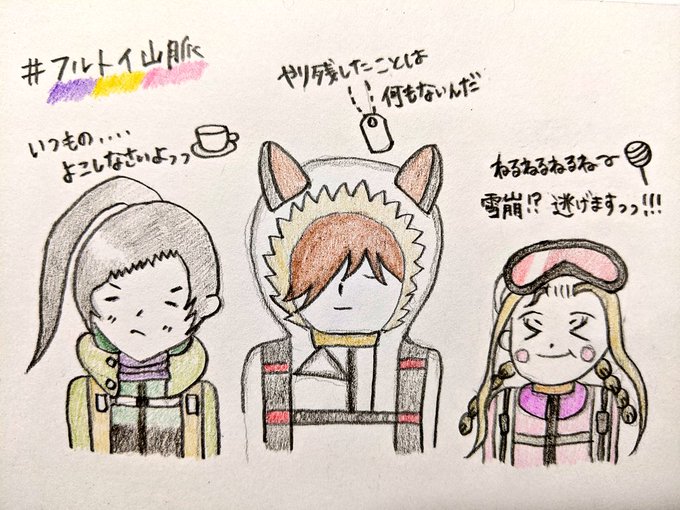 #フルトイ山脈
やり残したことは
何もないんだ
いつもの....
よこしなさいよっっ
ねるねるねるねで
雪崩!? 逃げますっっ!!!